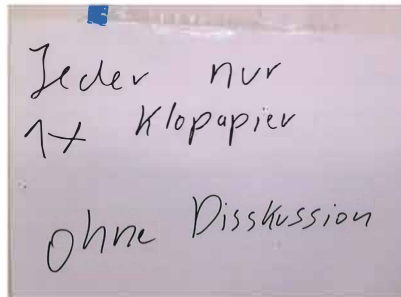 Jeder nur
1x Klopapier
ohne Disskussion